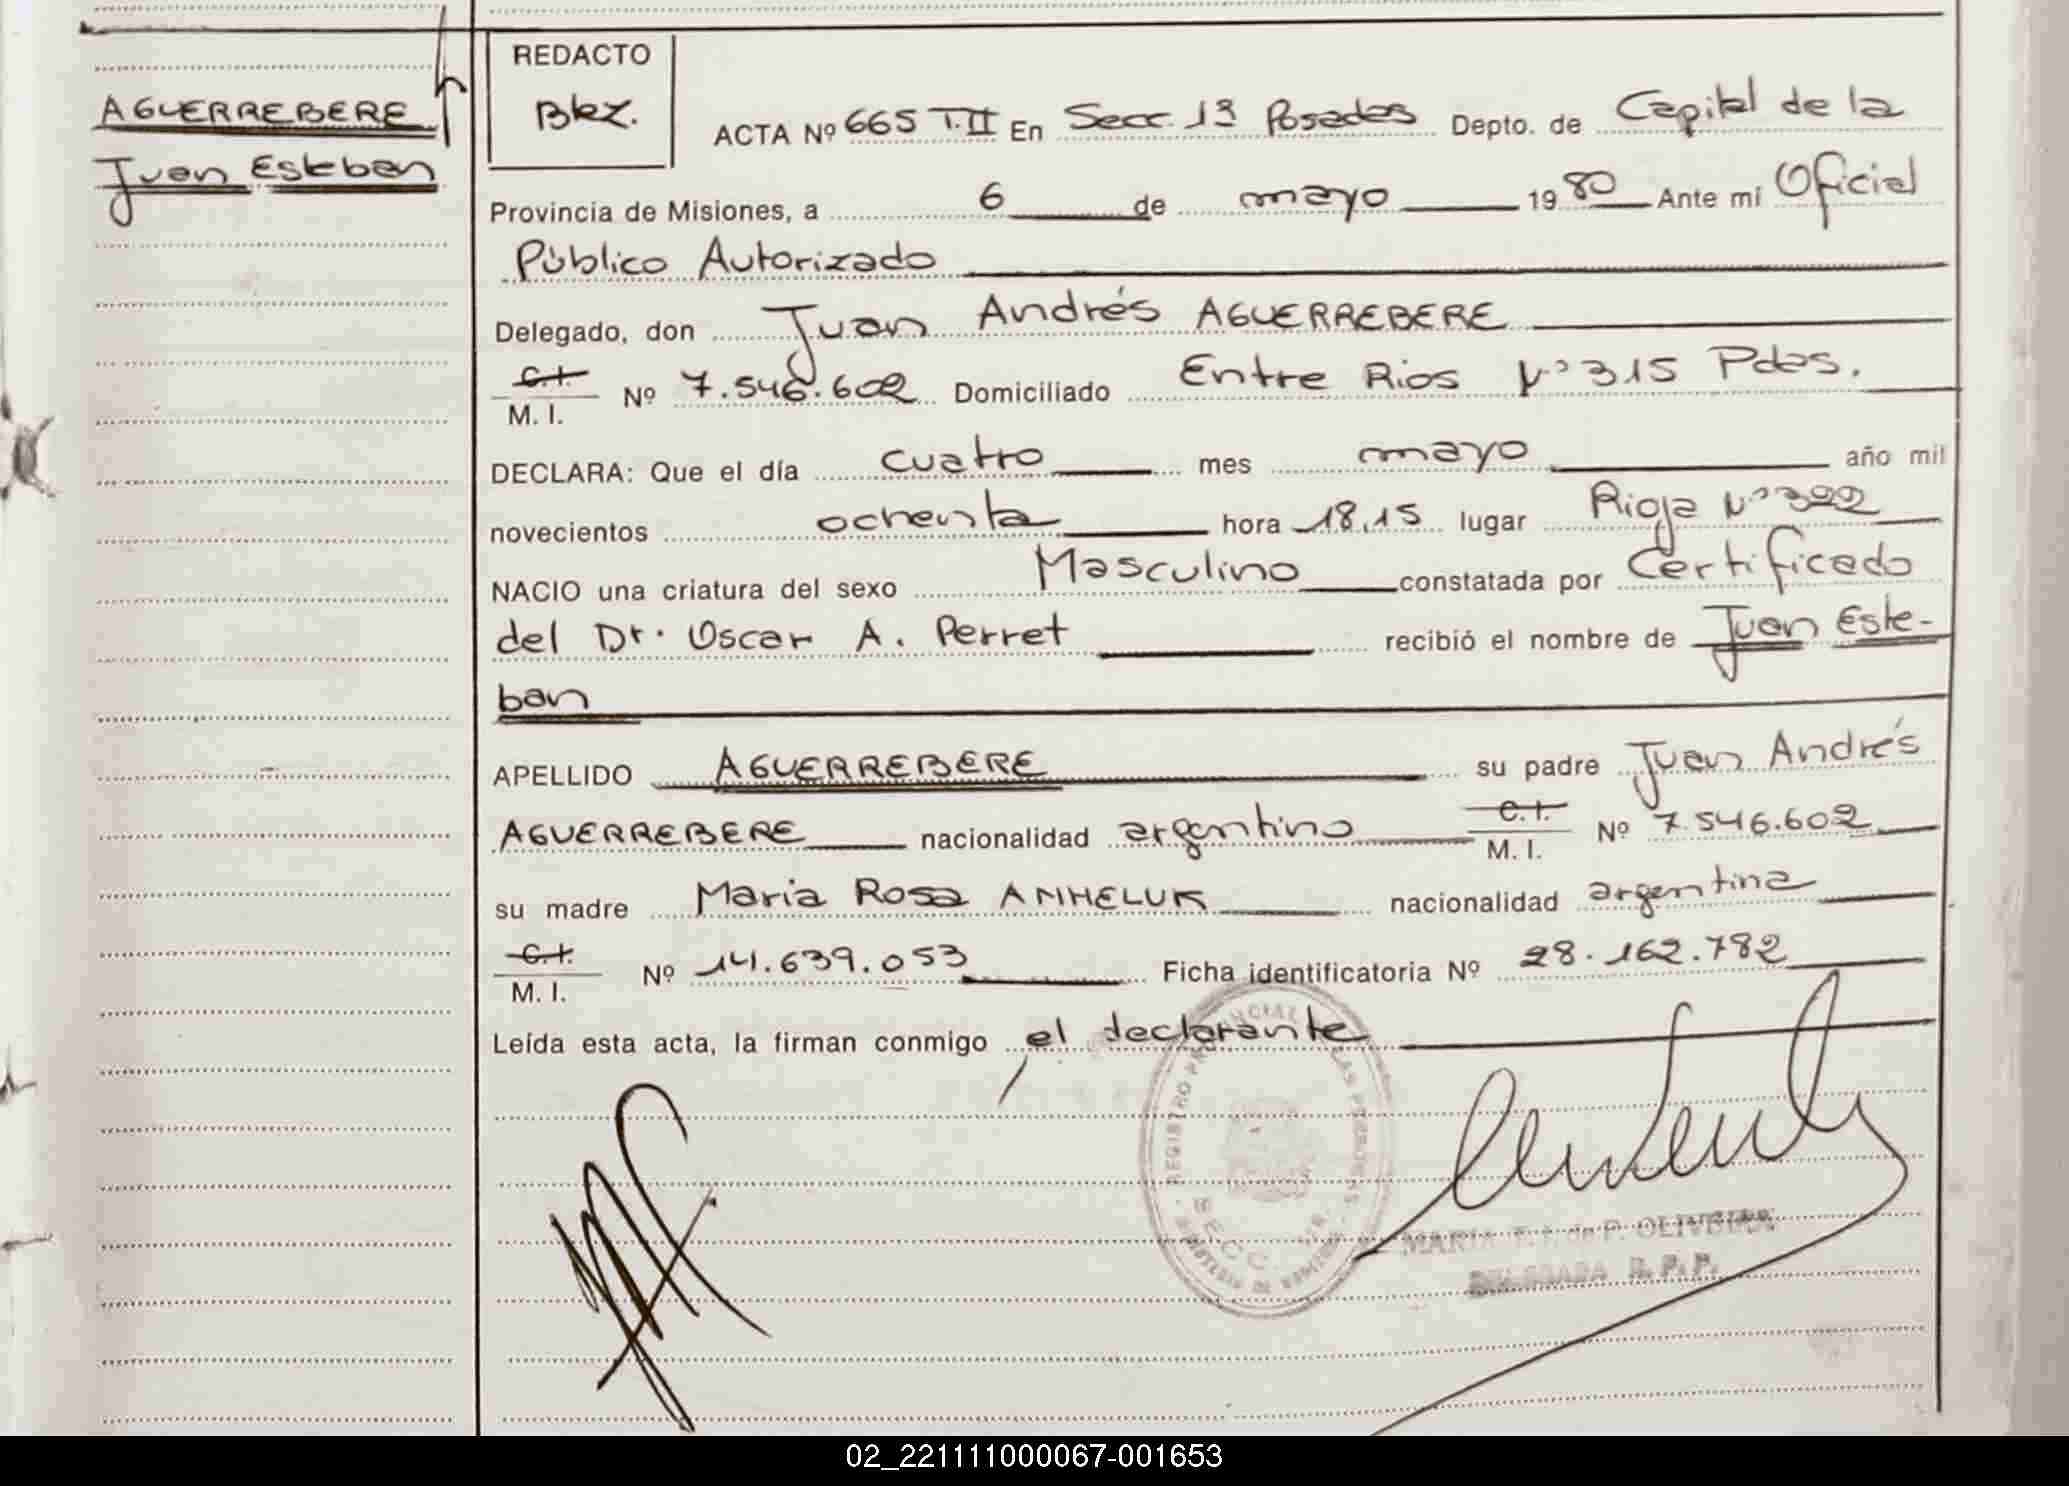 AGUERREBERE
Juan Esteban
REDACTO
Blez.
ACTA Nº 665 T.II En Secc. 13 Posadas Depto. de Capital de la
Provincia de Misiones, a 6 de mayo 1980 Ante mí Oficial
Público Autorizado
Delegado, don Juan Andrés AGUERREBERE
C.I. M. I. Nº 7.546.602 Domiciliado Entre Rios Nº 315 Pdas.
DECLARA: Que el día cuatro mes mayo año mil
novecientos ochenta hora 18,15 lugar Rioja Nº 322
NACIO una criatura del sexo Masculino constatada por Certificado
del Dr. Oscar A. Perret recibió el nombre de Juan Este-
ban
APELLIDO AGUERREBERE su padre Juan Andrés
AGUERREBERE nacionalidad argentino C.I. M. I. Nº 7.546.602
su madre Maria Rosa ANHELUK nacionalidad argentina
C.I. M. I. Nº 14.639.053 Ficha identificatoria Nº 28.162.782
Leída esta acta, la firman conmigo el declarante
REGISTRO PROVINCIAL DE LAS PERSONAS
SECC.
MARIA de P. OLIVEIRA
DELEGADA R. P. P.
02_221111000067-001653